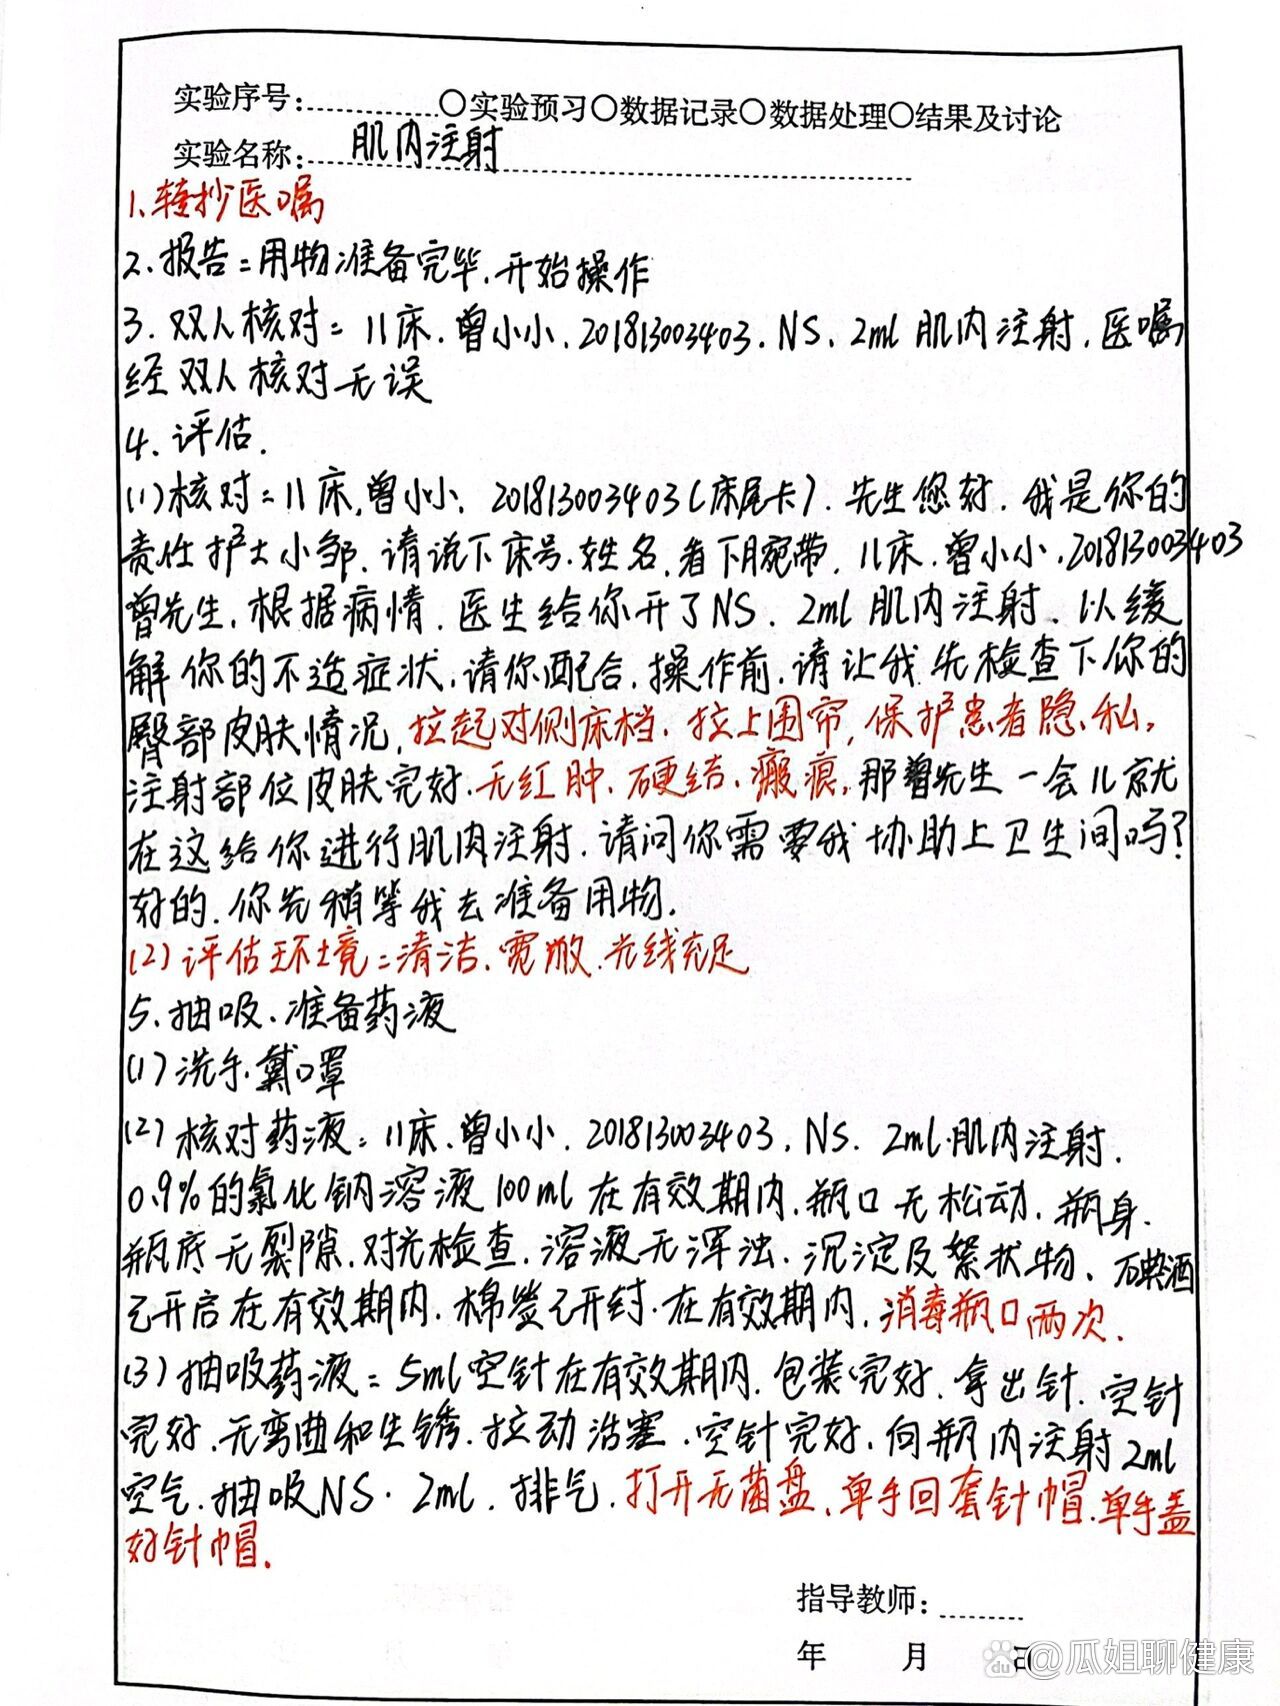 实验序号:............○实验预习○数据记录○数据处理○结果及讨论
实验名称:肌内注射
1、转抄医嘱
2、报告：用物准备完毕、开始操作
3、双人核对：11床、曾小小、201813003403、NS、2ml 肌内注射、医嘱
经双人核对无误
4、评估.
(1)核对：11床,曾小小、201813003403(床尾卡). 先生您好、我是你的
责任护士小邹、请说下床号、姓名、看下腕带、11床、曾小小、201813003403
曾先生、根据病情、医生给你开了NS、2ml 肌内注射、以缓
解你的不适症状、请你配合、操作前、请让我先检查下你的
臀部皮肤情况、拉起对侧床档、拉上围帘,保护患者隐私、
注射部位皮肤完好、无红肿、硬结、瘢痕、那曾先生一会儿就
在这给你进行肌肉注射、请问你需要我协助上卫生间吗?
好的、你先稍等我去准备用物、
(2)评估环境：清洁、宽敞、光线充足
5、抽吸、准备药液
(1)洗手、戴口罩
(2)核对药液：11床、曾小小、201813003403、NS、2ml、肌内注射、
0.9%的氯化钠溶液100ml在有效期内、瓶口无松动、瓶身、
瓶底无裂隙、对光检查、溶液无浑浊、沉淀及絮状物、碘酒
已开启在有效期内、棉签已开封、在有效期内、消毒瓶口两次、
(3)抽吸药液：5ml空针在有效期内、包装完好、拿出针、空针
完好、无弯曲和生锈、拉动活塞、空针完好、向瓶内注射2ml
空气、抽吸NS、2ml、排气、打开无菌盘、单手回套针帽、单手盖
好针帽、
指导教师:.......
年 月 日
Bai du @瓜姐聊健康